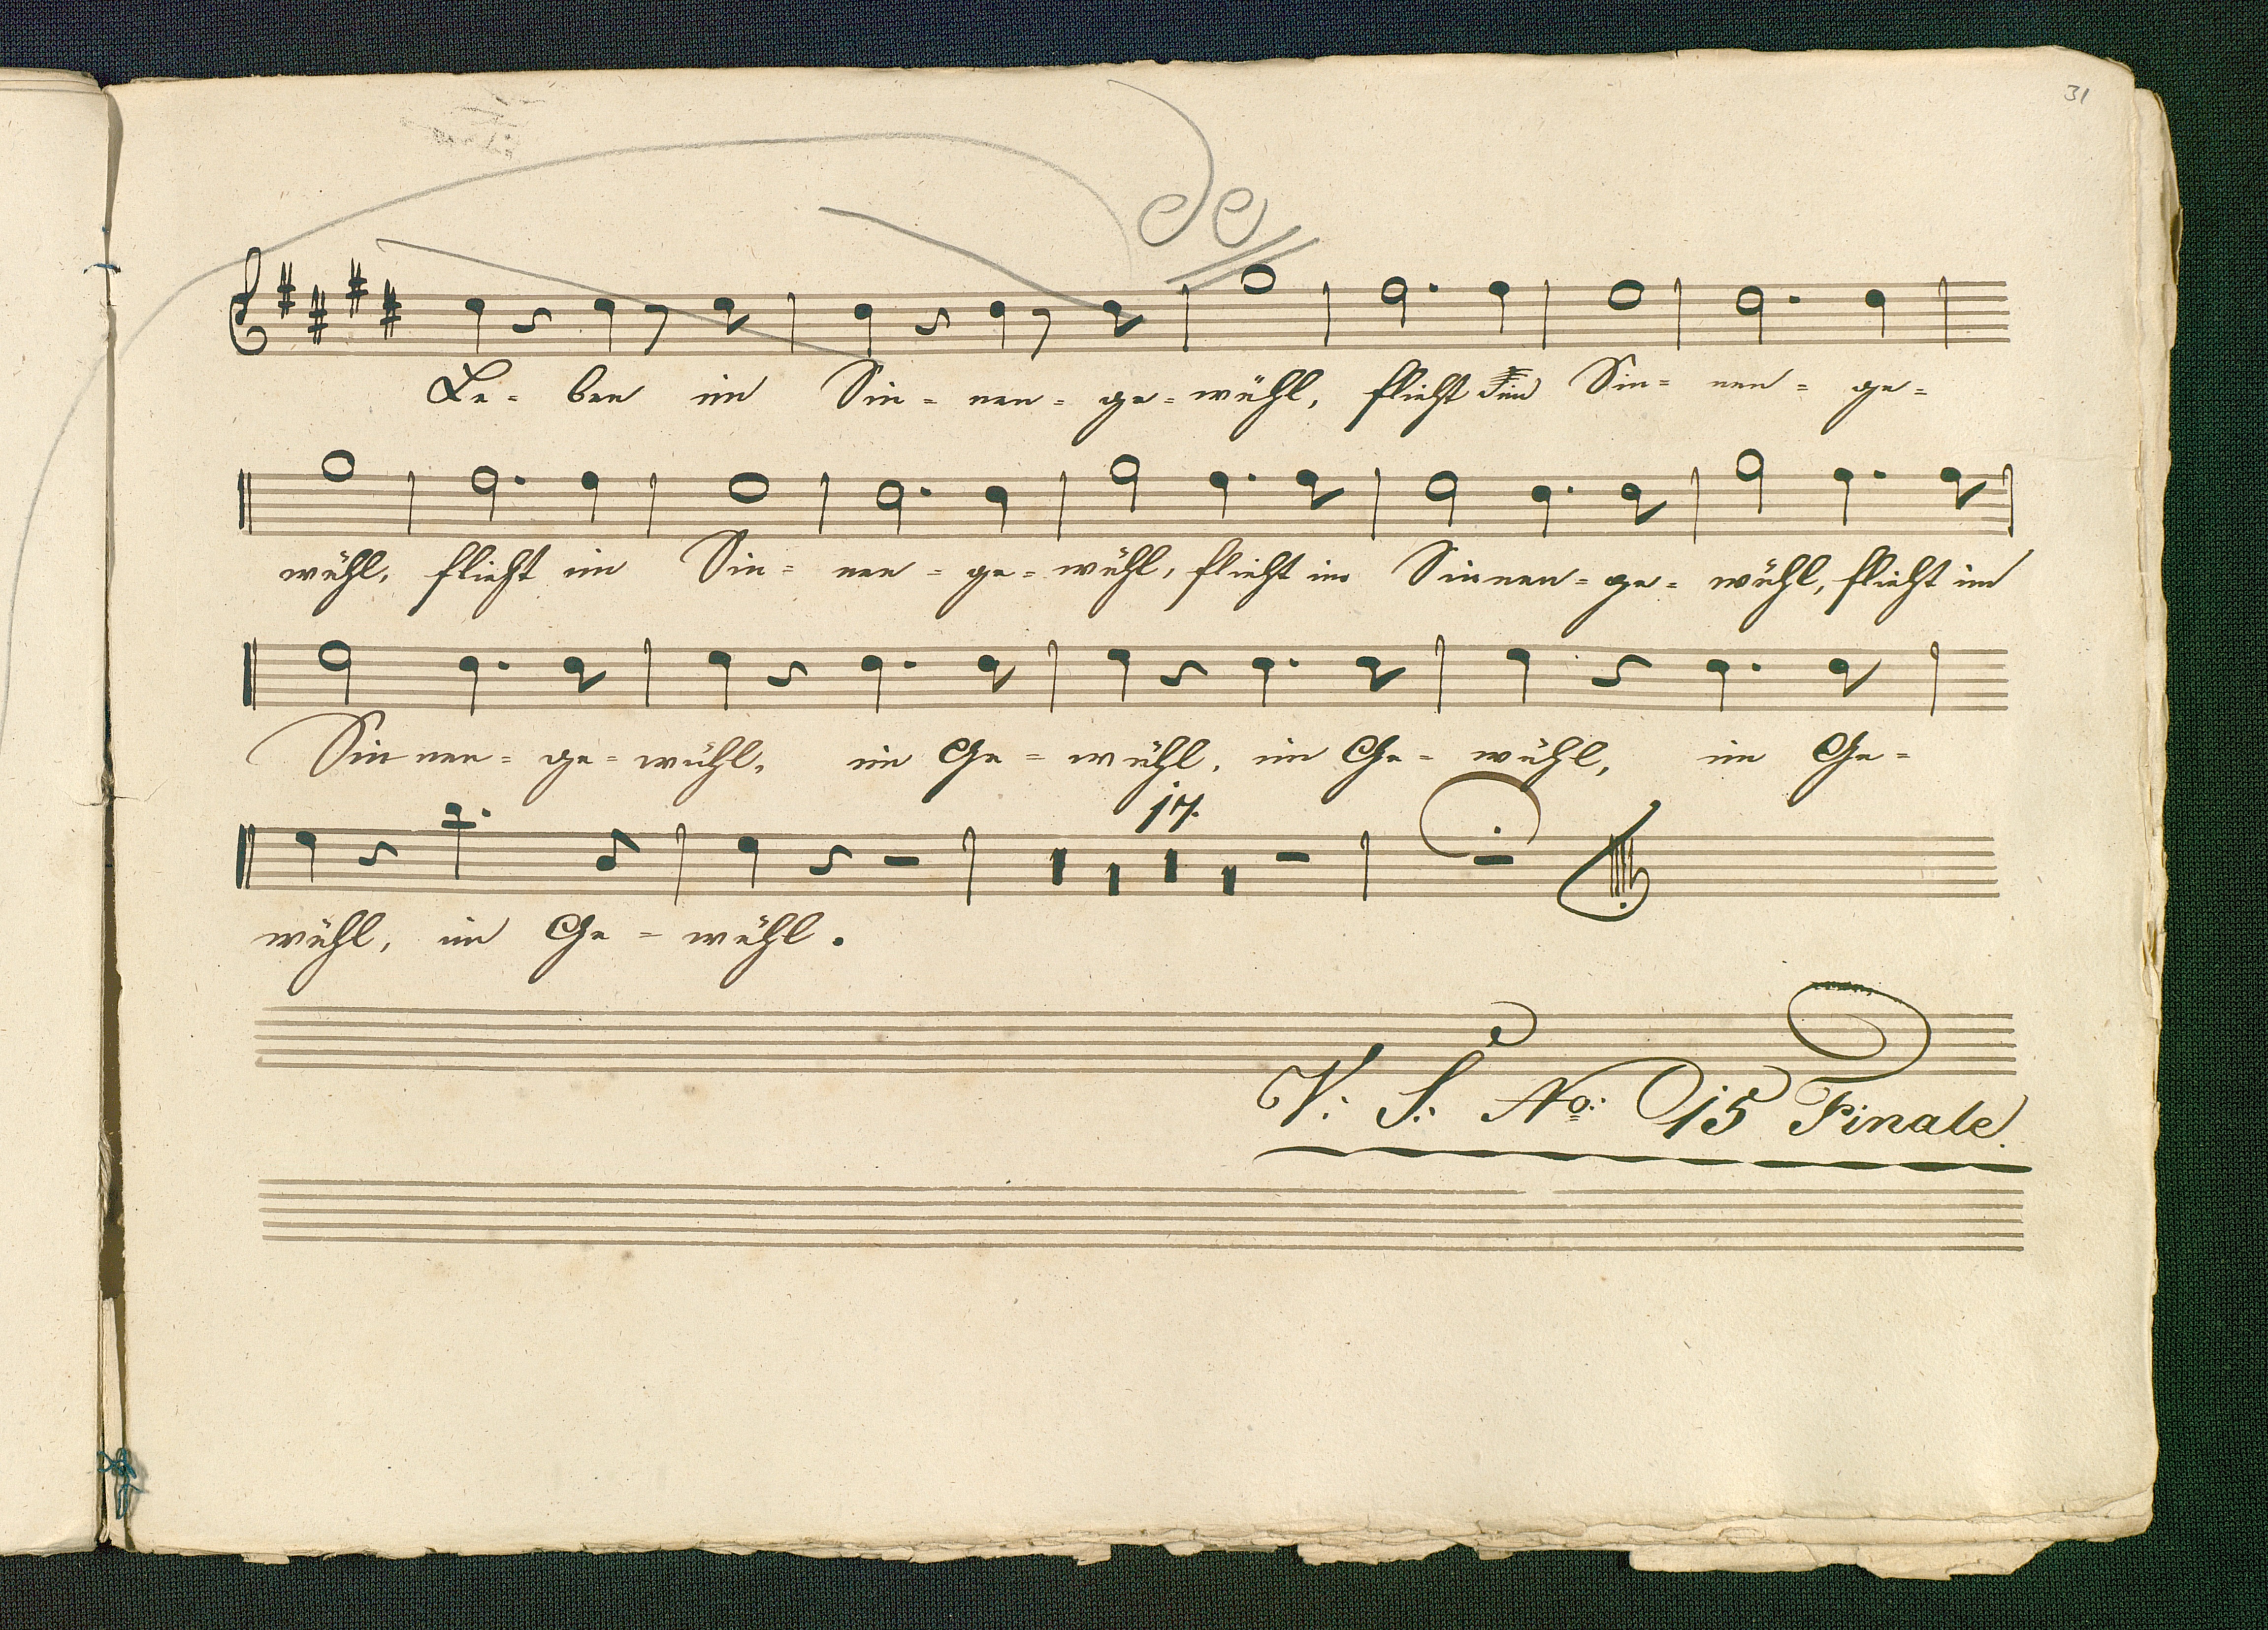 31
de
Le- ben im Sin- nen- ge- wühl, flieht im Sin- nen- ge-
wühl, flieht im Sin- nen- ge- wühl, flieht im Sinnen- ge- wühl, flieht im
Sinnen- ge- wühl, im Ge- wühl, im Ge- wühl, im Ge-
17.
wühl, im Ge- wühl.
V: S: No: 15 Finale.